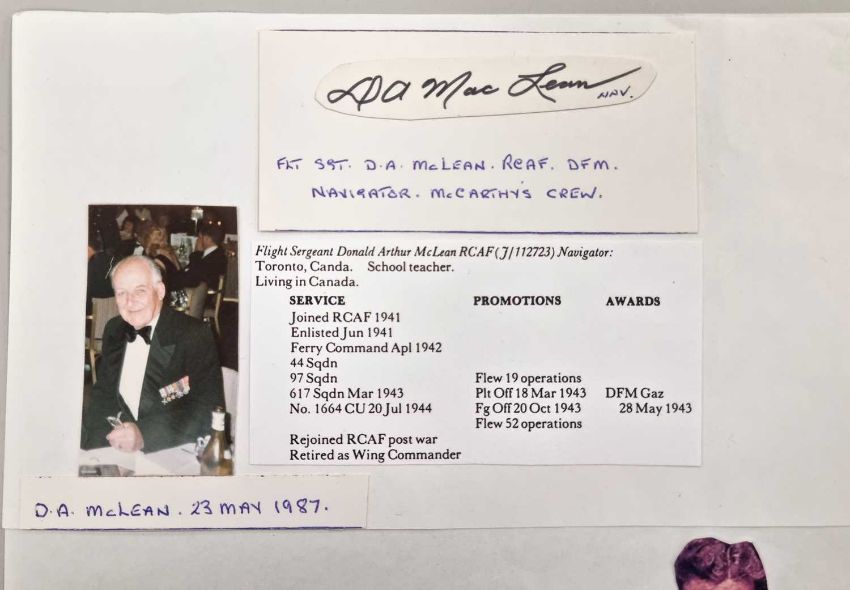 DA Mac Lean NAV.
FLT SGT. D.A. McLEAN. RCAF. DFM.
NAVIGATOR. McCARTHYS CREW.
Flight Sergeant Donald Arthur McLean RCAF (J/112723) Navigator:
Toronto, Canda. School teacher.
Living in Canada.
SERVICE PROMOTIONS AWARDS
Joined RCAF 1941
Enlisted Jun 1941
Ferry Command Apl 1942
44 Sqdn
97 Sqdn Flew 19 operations
617 Sqdn Mar 1943 Plt Off 18 Mar 1943 DFM Gaz
No. 1664 CU 20 Jul 1944 Fg Off 20 Oct 1943 28 May 1943
Flew 52 operations
Rejoined RCAF post war
Retired as Wing Commander
D.A. McLEAN. 23 MAY 1987.